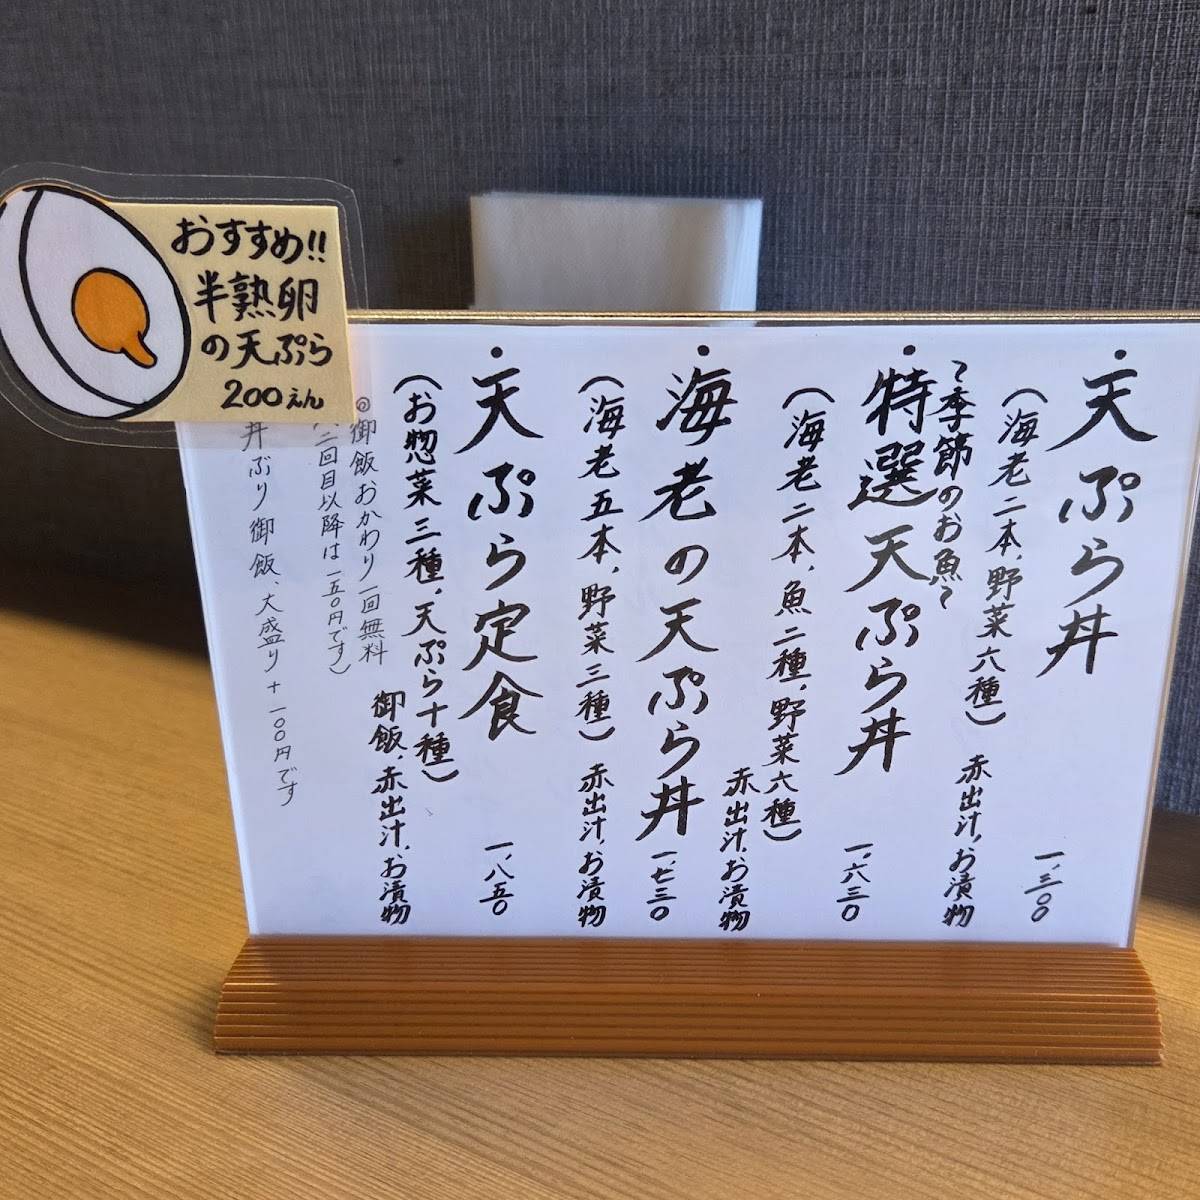 おすすめ!!
半熟卵
の天ぷら
200えん
・天ぷら丼
(海老二本、野菜六種)
赤出汁、お漬物
一、三〇〇
・特選天ぷら丼
〜季節のお魚〜
(海老二本、魚二種、野菜六種)
赤出汁、お漬物
一、六三〇
・海老の天ぷら丼
(海老五本、野菜三種)
赤出汁、お漬物
一、七三〇
・天ぷら定食
(お惣菜三種、天ぷら十種)
御飯、赤出汁、お漬物
一、八五〇
◎御飯おかわり一回無料
(二回目以降は一五〇円です)
丼ぶり御飯、大盛り+一〇〇円です